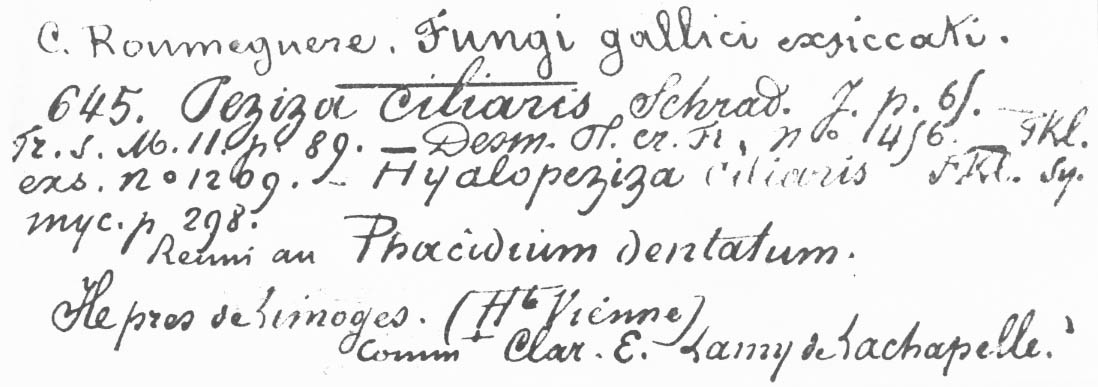 C. Roumeguere. Fungi gallici exsiccati.
645. Peziza ciliaris Schrad. J. p. 65.
Fr. S. M. 11. p. 89. — Desm. Pl. cr. Fr, no 1456. — Fkl.
exs. no 1209. — Hyalopeziza ciliaris Fkl. Sy.
myc. p 298.
Reuni au Phacidium dentatum.
pres de Limoges. (Hte Vienne)
Comm t Clar. E. Lamy de Lachapelle.